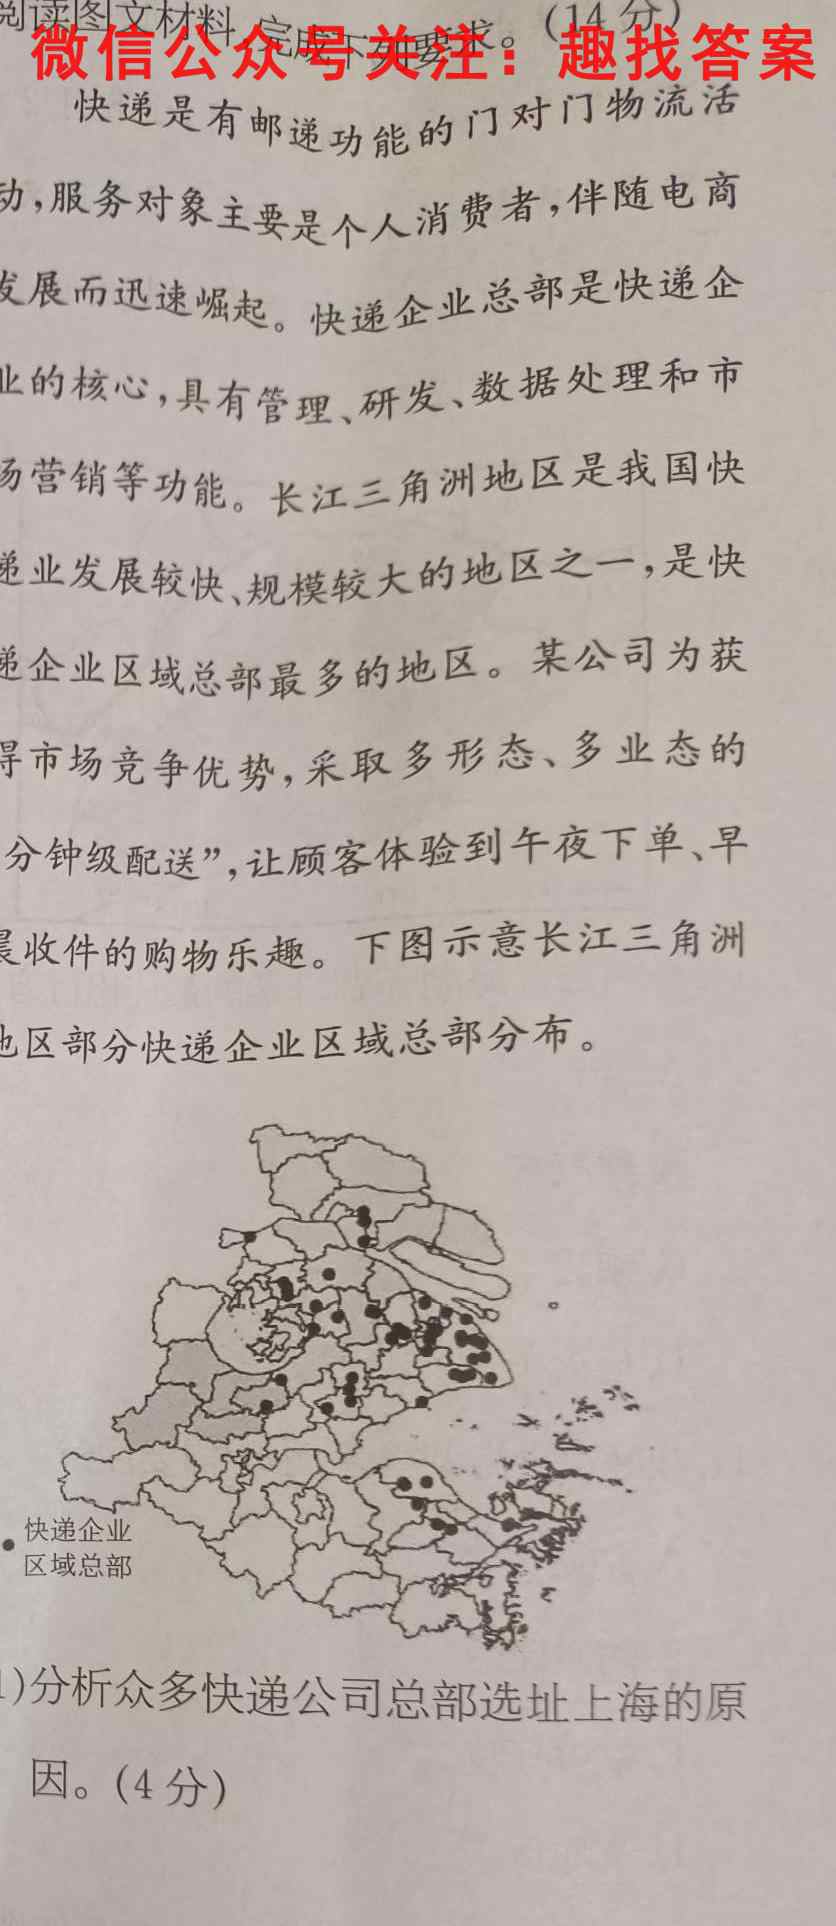 阅读图文材料,完成下列要求。(14分)
微信公众号关注:趣找答案
快递是有邮递功能的门对门物流活
动,服务对象主要是个人消费者,伴随电商
发展而迅速崛起。快递企业总部是快递企
业的核心,具有管理、研发、数据处理和市
场营销等功能。长江三角洲地区是我国快
递业发展较快、规模较大的地区之一,是快
递企业区域总部最多的地区。某公司为获
得市场竞争优势,采取多形态、多业态的
分钟级配送”,让顾客体验到午夜下单、早
晨收件的购物乐趣。下图示意长江三角洲
地区部分快递企业区域总部分布。
快递企业
区域总部
1)分析众多快递公司总部选址上海的原
因。(4分)